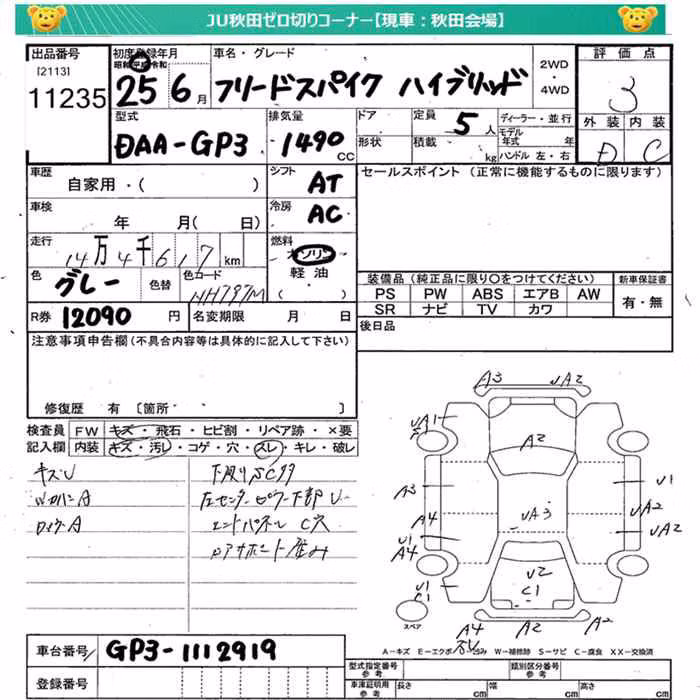 JU秋田ゼロ切りコーナー【現車：秋田会場】
出品番号
[2113]
11235
初度登録年月
昭和 平成 令和
25 6月
車名・グレード
フリードスパイク ハイブリッド
2WD
・
4WD
評価点
3
外装 内装
D C
型式
DAA-GP3
排気量
1490 CC
ドア
形状
定員 5人
積載 kg
ディーラー・並行
モデル年式 年
ハンドル 左・右
車歴
自家用・( )
シフト AT
セールスポイント（正常に機能するものに限ります）
車検
年 月( 日)
冷房 AC
走行
14万4千617km
燃料
ガソリン
軽油
( )
色 グレー
色替
色コード NH797M
装備品（純正品に限り〇をつけてください）
PS PW ABS エアB AW
SR ナビ TV カワ
新車保証書
有・無
R券 12090 円
名変期限 月 日
後日品
注意事項申告欄(不具合内容等は具体的に記入して下さい)
修復歴 有 [箇所 ]
検査員
記入欄
FW キズ・飛石・ヒビ割・リペア跡・×要
内装 キズ・汚レ・コゲ・穴・スレ・キレ・破レ
キズU
下廻りSC99
左センターピラー下部U
ロッカーA
エンドパネル C穴
A3 UA2
UA1
A2
A3
U1
UA3
UA2
A4
UA2
U1
A4
U1
C1
U2
C1
スペア
A4
A2
A2
A-キズ E-エクボ U-凹み W-補修跡 S-サビ C-腐食 XX-交換済
車台番号 GP3-1112919
登録番号
型式指定番号
参考
類別区分番号
参考
車庫証明用
参考
長さ cm
幅 cm
高さ cm